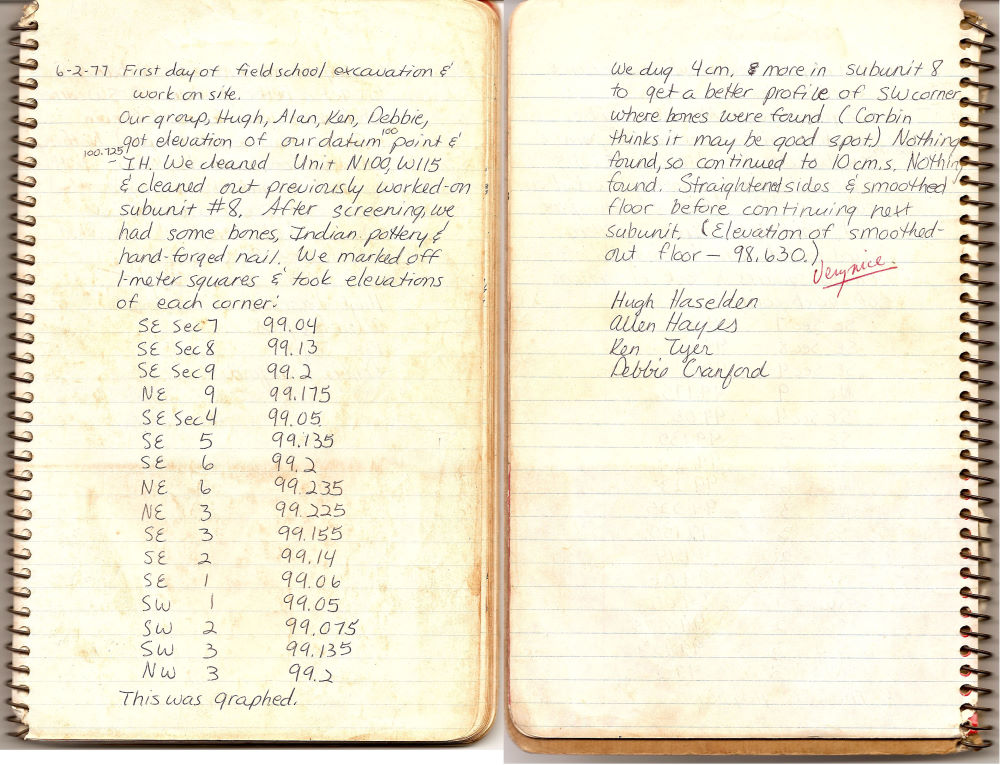 6-2-77 First day of field school excavation &
work on site.
Our group, Hugh, Alan, Ken, Debbie,
got elevation of our datum 100 point &
100.725 – I.H. We cleaned Unit N100, W115
& cleaned out previously worked-on
subunit #8. After screening, we
had some bones, Indian pottery &
hand-forged nail. We marked off
1-meter squares & took elevations
of each corner:
SE Sec 7 99.04
SE Sec 8 99.13
SE Sec 9 99.2
NE 9 99.175
SE Sec 4 99.05
SE 5 99.135
SE 6 99.2
NE 6 99.235
NE 3 99.225
SE 3 99.155
SE 2 99.14
SE 1 99.06
SW 1 99.05
SW 2 99.075
SW 3 99.135
NW 3 99.2
This was graphed.
We dug 4 cm. & more in subunit 8
to get a better profile of SW corner
where bones were found (Corbin
thinks it may be good spot.) Nothing
found, so continued to 10 cm.s. Nothing
found. Straightened sides & smoothed
floor before continuing next
subunit. (Elevation of smoothed-
out floor – 98.630.)
Very nice.
Hugh Haselden
Allen Hayes
Ken Tyer
Debbie Cranford